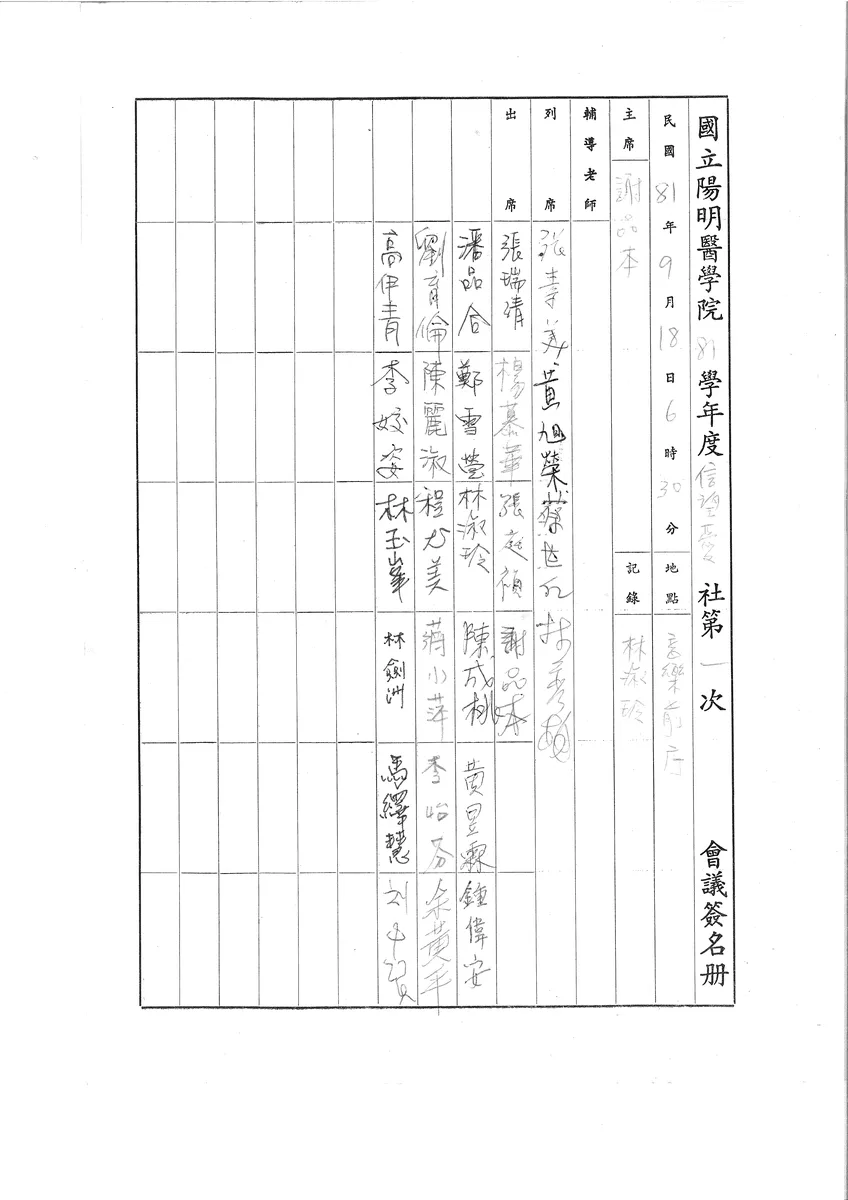 國立陽明醫學院81學年度信望愛社第一次會議簽名册
民國81年9月18日6時30分 地點 音樂前厅
主席 謝品本 記錄 林淑玲
輔導老師
列席 張壽美 黃旭榮
出席 張瑞倩 楊慕華 張庭禎 謝品本
潘品合 鄭雪瑩 林淑玲 陳成桃 黃昱霖 鍾偉安
劉育倫 陳麗淑 程尤美 蔣小萍 李怡芬 余黃平
高伊青 李姣姿 林玉峯 林劍洲 馬繹慧